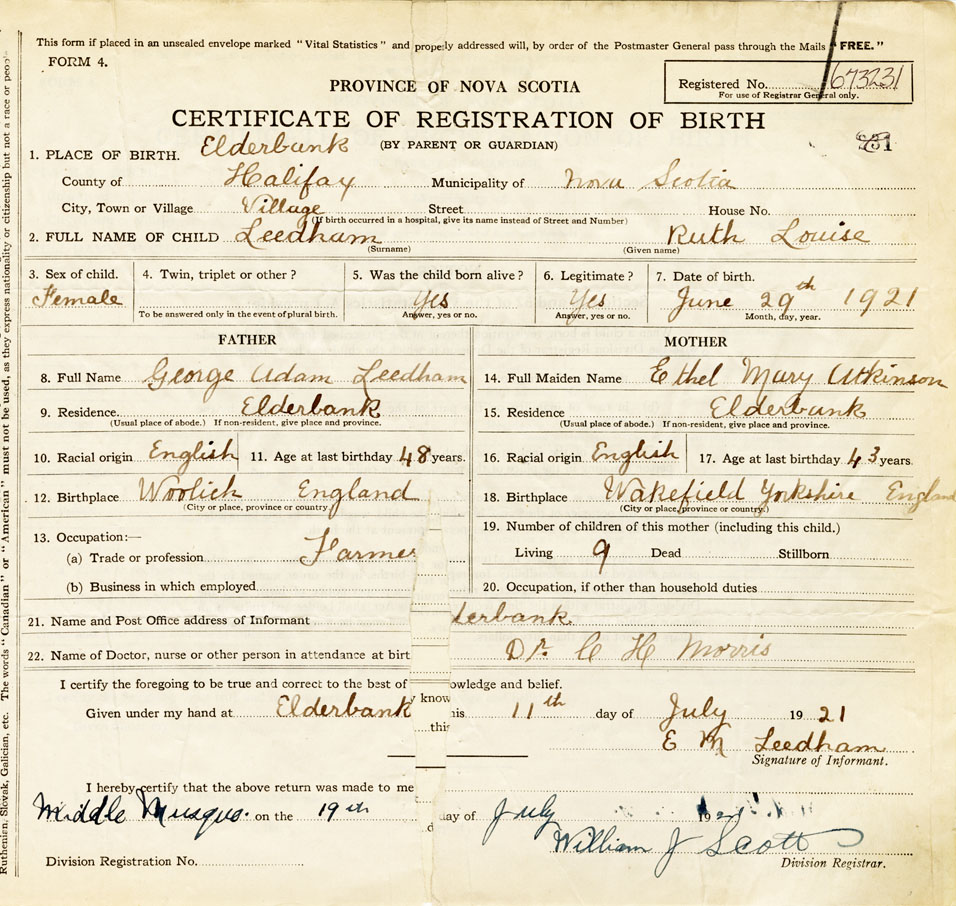 This form if placed in an unsealed envelope marked "Vital Statistics" and properly addressed will, by order of the Postmaster General pass through the Mails "FREE."
FORM 4.
Registered No. 673231
For use of Registrar General only.
PROVINCE OF NOVA SCOTIA
CERTIFICATE OF REGISTRATION OF BIRTH
(BY PARENT OR GUARDIAN)
1. PLACE OF BIRTH. Elderbank
County of Halifax Municipality of Nova Scotia
City, Town or Village Village Street House No.
(If birth occurred in a hospital, give its name instead of Street and Number)
2. FULL NAME OF CHILD Leedham Ruth Louise
(Surname) (Given name)
3. Sex of child. 4. Twin, triplet or other? 5. Was the child born alive? 6. Legitimate? 7. Date of birth.
Female Yes Yes June 29th 1921
To be answered only in the event of plural birth. Answer, yes or no. Answer, yes or no. Month, day, year.
FATHER
8. Full Name George Adam Leedham
9. Residence. Elderbank
(Usual place of abode.) If non-resident, give place and province.
10. Racial origin English 11. Age at last birthday 48 years.
12. Birthplace Woolich England
(City or place, province or country.)
13. Occupation:—
(a) Trade or profession Farmer
(b) Business in which employed
MOTHER
14. Full Maiden Name Ethel Mary Atkinson
15. Residence Elderbank
(Usual place of abode.) If non-resident, give place and province.
16. Racial origin English 17. Age at last birthday 43 years.
18. Birthplace Wakefield Yorkshire England
(City or place, province or country.)
19. Number of children of this mother (including this child.)
Living 9 Dead Stillborn
20. Occupation, if other than household duties
21. Name and Post Office address of Informant derbank
22. Name of Doctor, nurse or other person in attendance at birt Dr. C H Morris
I certify the foregoing to be true and correct to the best of y know owledge and belief.
Given under my hand at Elderbank this his 11th day of July 1921
E M Leedham
Signature of Informant.
I hereby certify that the above return was made to me
Middle Musquo. on the 19th day of July 19
William J Scott
Division Registration No. Division Registrar.
Ruthenien, Slovak, Galician, etc. The words "Canadian" or "American" must not be used, as they express nationality or citizenship but not a race or people